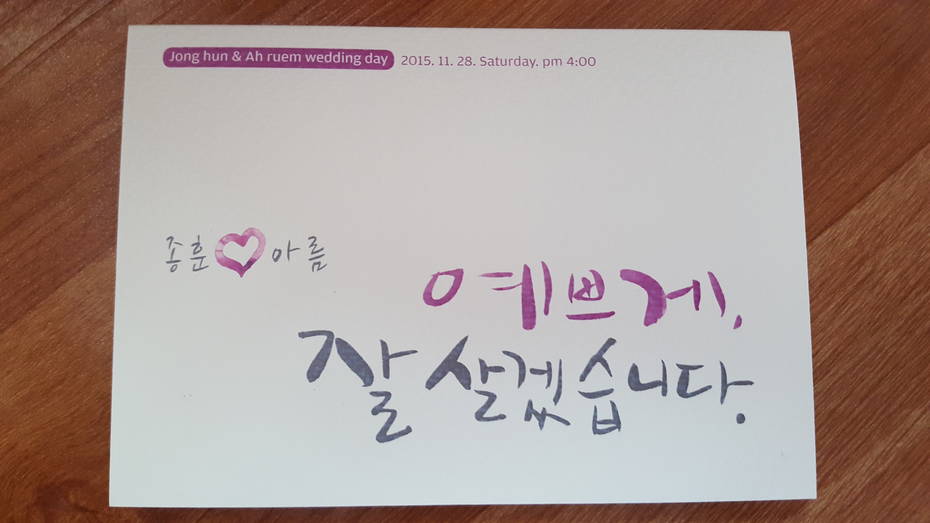 Jong hun & Ah ruem wedding day 2015. 11. 28. Saturday. pm 4:00
종훈 아름
예쁘게,
잘 살겠습니다.